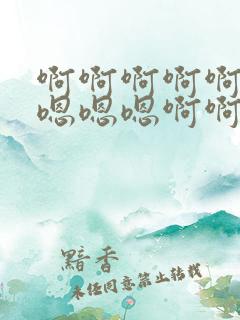 啊啊啊啊啊
嗯嗯嗯啊啊
黯香
未经同意禁止转载